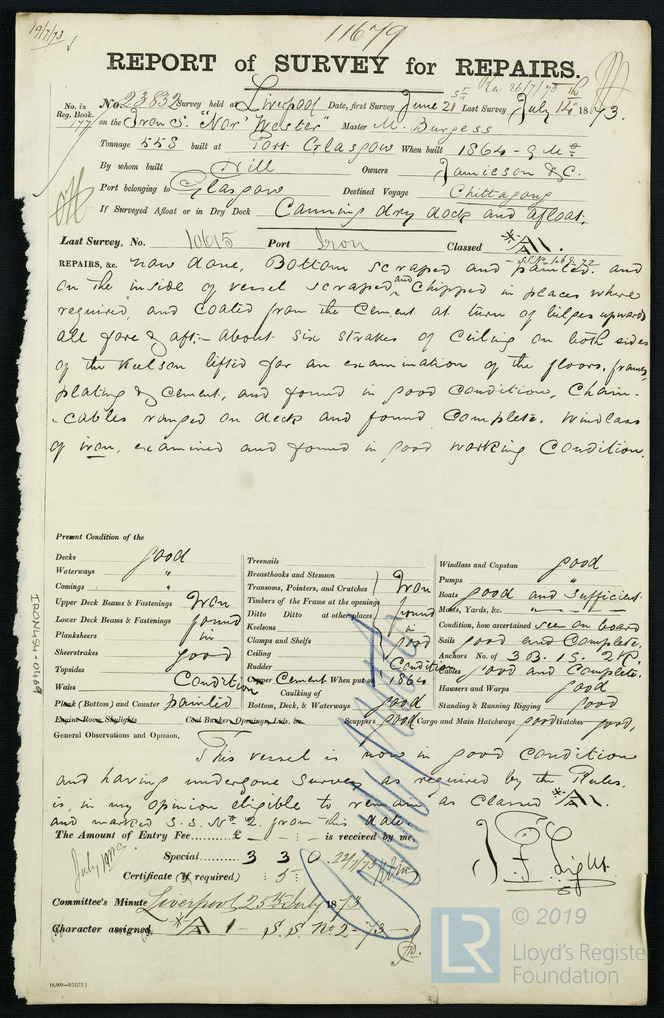 19/7/73
11679
REPORT of SURVEY for REPAIRS.
No. in Reg. Book. 177
No. 23832 Survey held at Liverpool Date, first Survey June 21st Last Survey July 14th 1873.
on the Iron S. "Nor' Wester" Master M. Burgess
Tonnage 558 built at Port Glasgow When built 1864 - 9 Mo
By whom built Hill Owners Jamieson & C.
Port belonging to Glasgow Destined Voyage Chittagong
If Surveyed Afloat or in Dry Dock Canning dry dock and afloat.
Last Survey, No. 10615 Port Iron Classed A1.
REPAIRS, &c. now done, Bottom scraped and painted. and
on the inside of vessel scraped and chipped in places where
required, and coated from the Cement at turn of bilges upward
all fore & aft. - about six strakes of Ceiling on both sides
of the Kelson lifted for an examination of the floors, frames,
plating & cement, and found in good condition, Chain-
-cables ranged on deck and found Complete. Windlass
of iron, examined and found in good working Condition.
Present Condition of the
Decks good
Waterways "
Comings "
Upper Deck Beams & Fastenings Iron
Lower Deck Beams & Fastenings found
Planksheers in
Sheerstrakes good
Topsides
Wales Condition
Plank (Bottom) and Counter painted
Engine Room Skylights Coal Bunker Openings, Lids, &c.
Treenails
Breasthooks and Stemson
Transoms, Pointers, and Crutches Iron
Timbers of the Frame at the openings
Ditto Ditto at other places found
Keelsons in
Clamps and Shelfs good
Ceiling
Rudder Condition
Copper Cement When put on 1864
Caulking of
Bottom, Deck, & Waterways good
Scuppers good Cargo and Main Hatchways good Hatches good,
Windlass and Capstan good
Pumps "
Boats good and Sufficient
Masts, Yards, &c. " " "
Condition, how ascertained see on board
Sails good and Complete.
Anchors No. of 3 B. 1 S. 2 K.
Cables good and Complete.
Hawsers and Warps good
Standing & Running Rigging good
General Observations and Opinion.
This vessel is now in good condition
and having undergone Survey as required by the Rules,
is, in my opinion eligible to remain as Classed A1.
and marked S.S. No 2. from this date.
The Amount of Entry Fee......£ - : - : - is received by me,
Special......... 3 3 0 22/7/73
Certificate (if required) : 5 :
J. F. Light.
Committee's Minute Liverpool 25th July 1873
Character assigned A 1 - S.S. No 2 - 73 -
[4,000—9/12/72.]
IRON454-0469
LR
© 2019
Lloyd's Register
Foundation